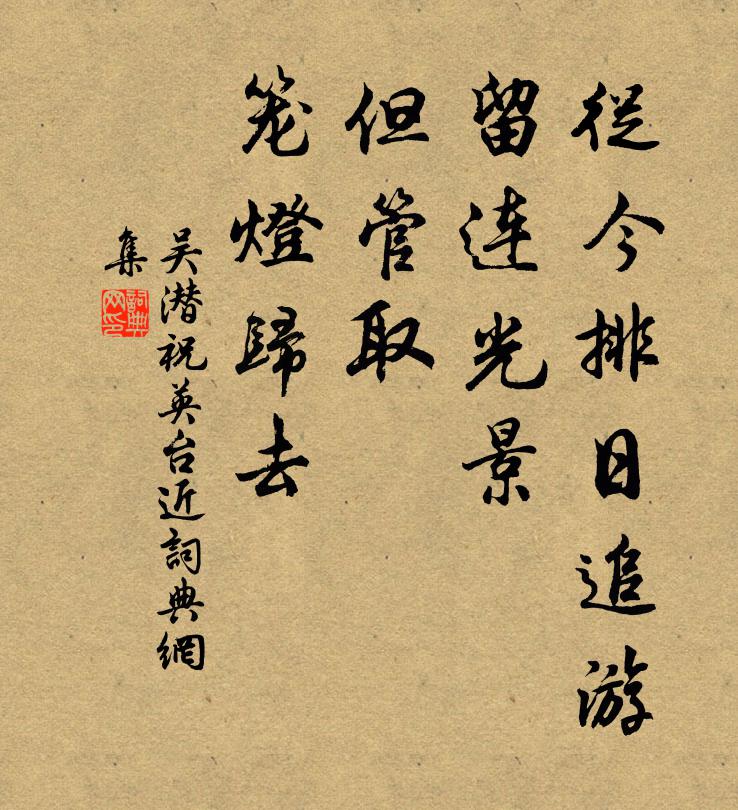 從今排日追游
留连光景
但管取
笼燈歸去
吴潜祝英台近詞典網
集
詞典
网印